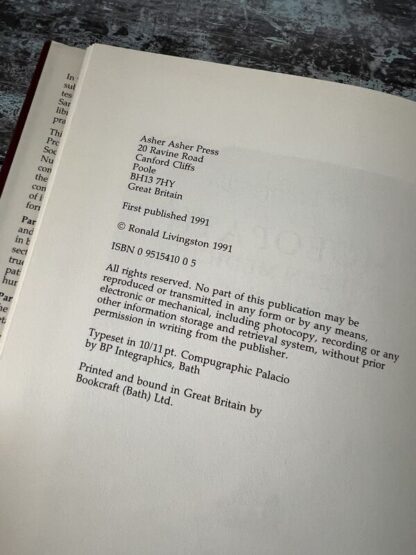 Asher Asher Press
20 Ravine Road
Canford Cliffs
Poole
BH13 7HY
Great Britain
First published 1991
© Ronald Livingston 1991
ISBN 0 9515410 0 5
All rights reserved. No part of this publication may be
reproduced or transmitted in any form or by any means,
electronic or mechanical, including photocopy, recording or any
other information storage and retrieval system, without prior
permission in writing from the publisher.
Typeset in 10/11 pt. Compugraphic Palacio
by BP Integraphics, Bath
Printed and bound in Great Britain by
Bookcraft (Bath) Ltd.